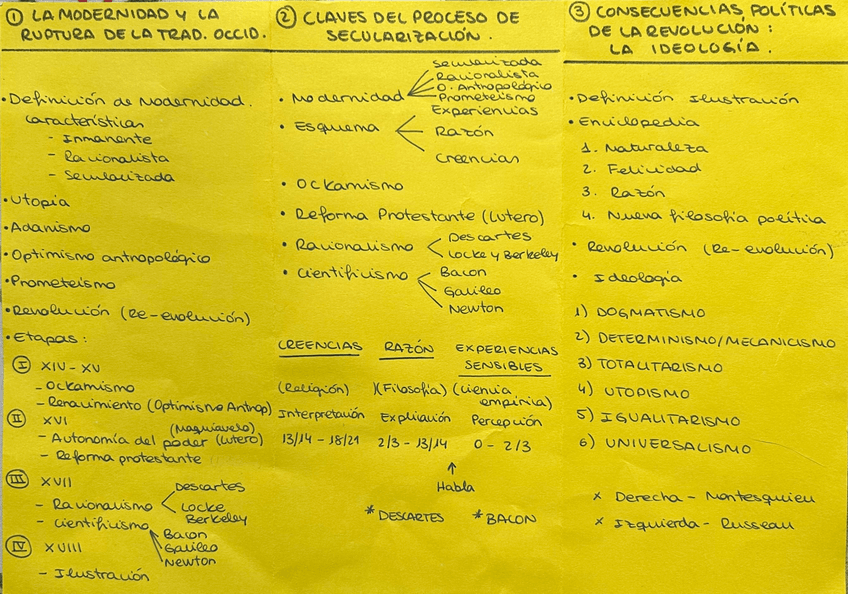 ① LA MODERNIDAD Y LA
RUPTURA DE LA TRAD. OCCID.
• Definición de Modernidad.
Características
- Inmanente
- Racionalista
- Secularizada
• Utopia
• Adanismo
• Optimismo antropológico
• Prometeismo
• Revolución (Re-evolución)
• Etapas:
Ⓘ XIV - XV
- Ockamismo
- Renacimiento (Optimismo Antrop)
Ⓘ​Ⓘ XVI
(Maquiavelo)
- Autonomía del poder (Lutero)
- Reforma protestante
III XVII
- Racionalismo
Descartes
Locke
Berkeley
- Cientificismo
Bacon
Galileo
Newton
IV XVIII
- Ilustración
② CLAVES DEL PROCESO DE
SECULARIZACIÓN.
• Modernidad
Secularizada
Racionalista
O. Antropológico
Prometeismo
• Esquema
Experiencias
Razón
Creencias
• Ockamismo
• Reforma Protestante (Lutero)
• Racionalismo
Descartes
Locke y Berkeley
• Cientificismo
Bacon
Galileo
Newton
CREENCIAS RAZÓN EXPERIENCIAS
SENSIBLES
(Religión) (Filosofía) (ciencia
empírica)
Interpretación Explicación Percepción
13/14 - 18/21 2/3 - 13/14 0 - 2/3
↑
Habla
* DESCARTES * BACON
③ CONSECUENCIAS POLÍTICAS
DE LA REVOLUCIÓN:
LA IDEOLOGÍA.
• Definición Ilustración
• Enciclopedia
1. Naturaleza
2. Felicidad
3. Razón
4. Nueva filosofía política
• Revolución (Re-evolución)
• Ideología
1) DOGMATISMO
2) DETERMINISMO/MECANICISMO
3) TOTALITARISMO
4) UTOPISMO
5) IGUALITARISMO
6) UNIVERSALISMO
x Derecha - Montesquieu
x Izquierda - Russeau